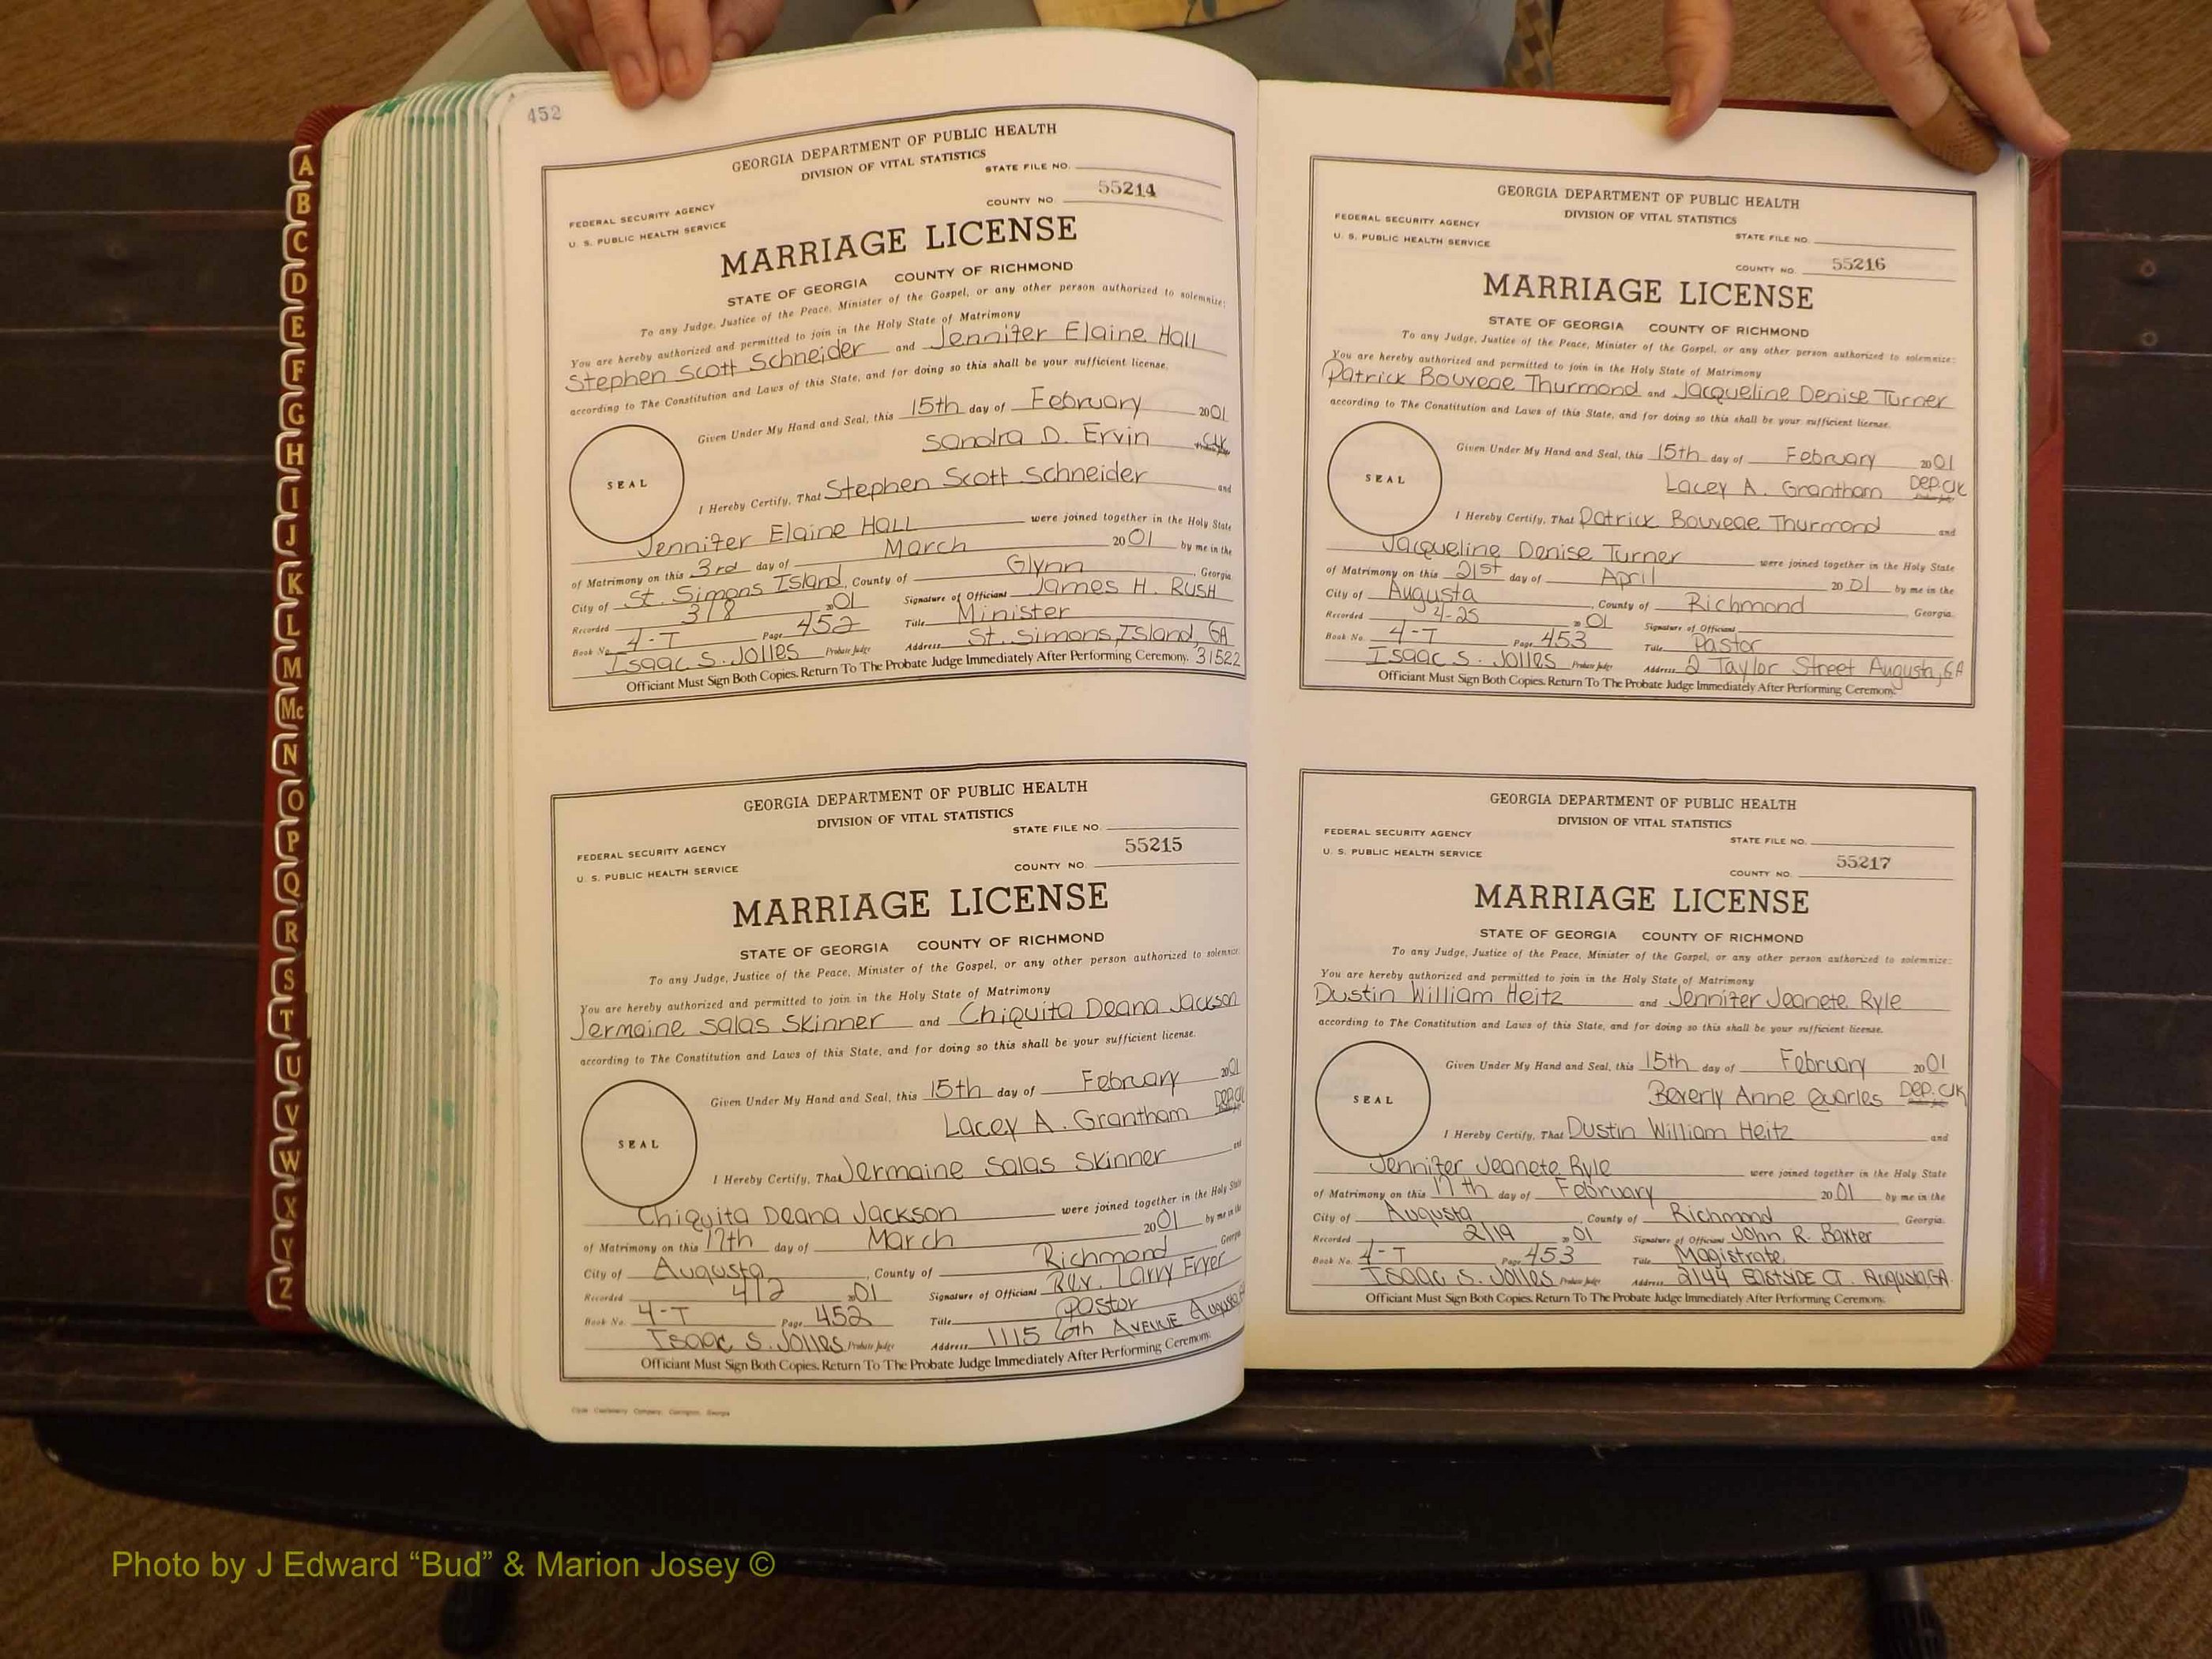 A
B
C
D
E
F
G
H
I
J
K
L
M
Mc
N
O
P
Q
R
S
T
U
V
W
X
Y
Z
452
GEORGIA DEPARTMENT OF PUBLIC HEALTH
DIVISION OF VITAL STATISTICS
STATE FILE NO.
55214
FEDERAL SECURITY AGENCY
COUNTY NO.
U. S. PUBLIC HEALTH SERVICE
MARRIAGE LICENSE
STATE OF GEORGIA COUNTY OF RICHMOND
To any Judge, Justice of the Peace, Minister of the Gospel, or any other person authorized to solemnize:
You are hereby authorized and permitted to join in the Holy State of Matrimony
Stephen Scott Schneider and Jennifer Elaine Hall
according to The Constitution and Laws of this State, and for doing so this shall be your sufficient license.
Given Under My Hand and Seal, this 15th day of February 2001
Sandra D. Ervin Clk
SEAL
I Hereby Certify, That Stephen Scott Schneider and
Jennifer Elaine Hall were joined together in the Holy State
of Matrimony on this 3rd day of March 2001 by me in the
City of St. Simons Island, County of Glynn, Georgia
Recorded 3/8 2001 Signature of Officiant James H. Rush
Book No. 4-T Page 452 Title Minister
Isaac S. Jolles Probate Judge Address St. Simons Island, GA 31522
Officiant Must Sign Both Copies. Return To The Probate Judge Immediately After Performing Ceremony.
GEORGIA DEPARTMENT OF PUBLIC HEALTH
DIVISION OF VITAL STATISTICS
STATE FILE NO.
55215
FEDERAL SECURITY AGENCY
COUNTY NO.
U. S. PUBLIC HEALTH SERVICE
MARRIAGE LICENSE
STATE OF GEORGIA COUNTY OF RICHMOND
To any Judge, Justice of the Peace, Minister of the Gospel, or any other person authorized to solemnize:
You are hereby authorized and permitted to join in the Holy State of Matrimony
Jermaine Salas Skinner and Chiquita Deana Jackson
according to The Constitution and Laws of this State, and for doing so this shall be your sufficient license.
Given Under My Hand and Seal, this 15th day of February 2001
Lacey A. Grantham Dep.Cl
SEAL
I Hereby Certify, That Jermaine Salas Skinner and
Chiquita Deana Jackson were joined together in the Holy State
of Matrimony on this 17th day of March 2001 by me in the
City of Augusta, County of Richmond Georgia
Recorded 4/2 2001 Signature of Officiant Rev. Larry Fryer
Book No. 4-T Page 452 Title Pastor
Isaac S. Jolles Probate Judge Address 1115 6th Avenue Augusta
Officiant Must Sign Both Copies. Return To The Probate Judge Immediately After Performing Ceremony.
Company, Covington, Georgia
GEORGIA DEPARTMENT OF PUBLIC HEALTH
DIVISION OF VITAL STATISTICS
FEDERAL SECURITY AGENCY
STATE FILE NO.
U. S. PUBLIC HEALTH SERVICE
COUNTY NO. 55216
MARRIAGE LICENSE
STATE OF GEORGIA COUNTY OF RICHMOND
To any Judge, Justice of the Peace, Minister of the Gospel, or any other person authorized to solemnize:
You are hereby authorized and permitted to join in the Holy State of Matrimony
Patrick Bouveae Thurmond and Jacqueline Denise Turner
according to The Constitution and Laws of this State, and for doing so this shall be your sufficient license.
Given Under My Hand and Seal, this 15th day of February 2001
Lacey A. Grantham Dep.Clk
SEAL
I Hereby Certify, That Patrick Bouveae Thurmond and
Jacqueline Denise Turner were joined together in the Holy State
of Matrimony on this 21st day of April 2001 by me in the
City of Augusta, County of Richmond Georgia.
Recorded 4-25 2001 Signature of Officiant
Book No. 4-T Page 453 Title Pastor
Isaac S. Jolles Probate Judge Address 2 Taylor Street Augusta, GA
Officiant Must Sign Both Copies. Return To The Probate Judge Immediately After Performing Ceremony.
GEORGIA DEPARTMENT OF PUBLIC HEALTH
DIVISION OF VITAL STATISTICS
FEDERAL SECURITY AGENCY
STATE FILE NO.
U. S. PUBLIC HEALTH SERVICE
55217
COUNTY NO.
MARRIAGE LICENSE
STATE OF GEORGIA COUNTY OF RICHMOND
To any Judge, Justice of the Peace, Minister of the Gospel, or any other person authorized to solemnize:
You are hereby authorized and permitted to join in the Holy State of Matrimony
Dustin William Heitz and Jennifer Jeanete Ryle
according to The Constitution and Laws of this State, and for doing so this shall be your sufficient license.
Given Under My Hand and Seal, this 15th day of February 2001
Beverly Anne Quarles Dep. Clk
SEAL
I Hereby Certify, That Dustin William Heitz and
Jennifer Jeanete Ryle were joined together in the Holy State
of Matrimony on this 17th day of February 2001 by me in the
City of Augusta, County of Richmond Georgia.
Recorded 2/19 2001 Signature of Officiant John R. Baxter
Book No. 4-T Page 453 Title Magistrate
Isaac S. Jolles Probate Judge Address 2144 EASTSIDE CT. Augusta GA.
Officiant Must Sign Both Copies. Return To The Probate Judge Immediately After Performing Ceremony.
Photo by J Edward “Bud” & Marion Josey ©